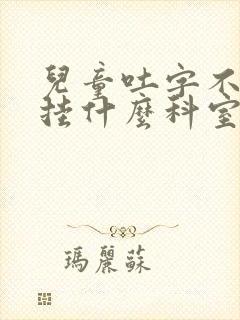 兒童吐字不
挂什麼科室
瑪麗蘇